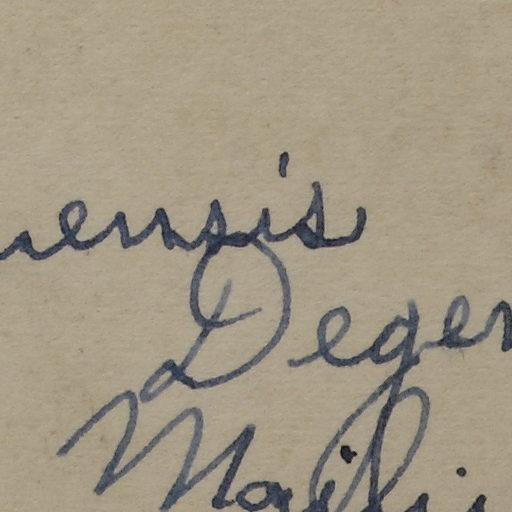 nensis
Degen
Maili